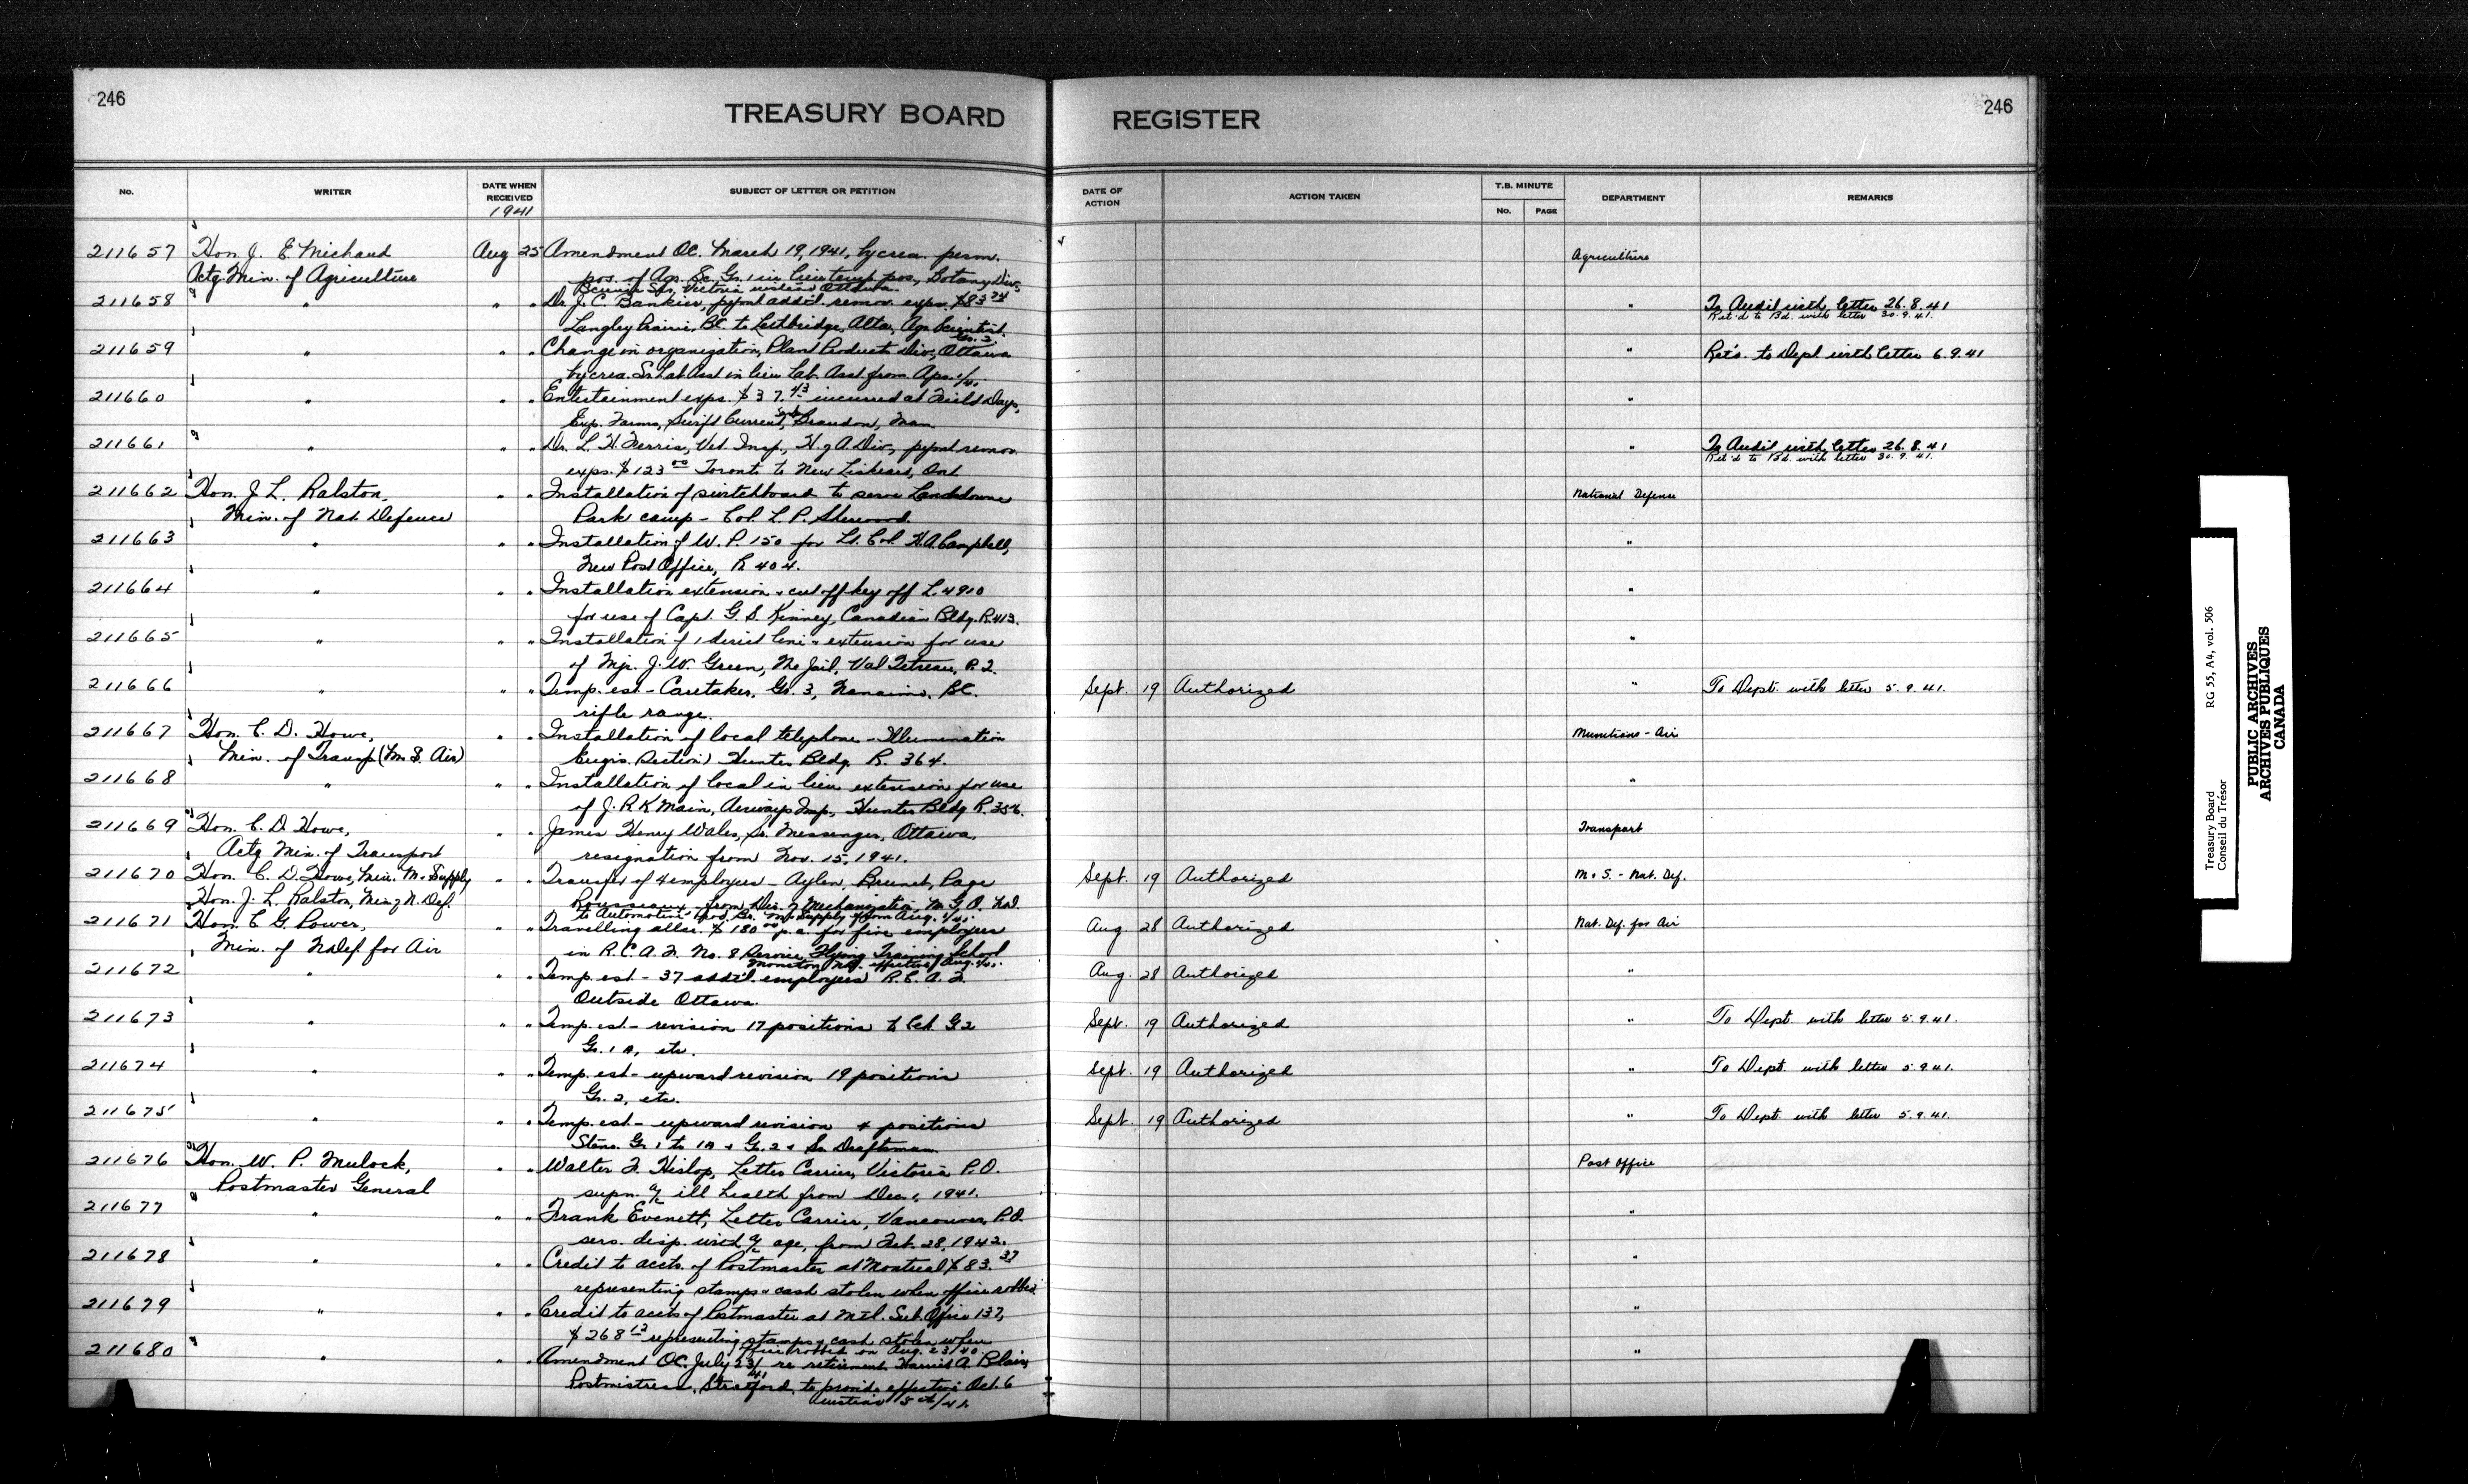 246
TREASURY BOARD REGISTER
246
No. WRITER DATE WHEN RECEIVED SUBJECT OF LETTER OR PETITION DATE OF ACTION ACTION TAKEN T.B. MINUTE DEPARTMENT REMARKS
1941 No. PAGE
211657 Hon. J. E. Michaud Aug 25 Amendment OC. March 19, 1941, by crea. perm. Agriculture
Actg. Min. of Agriculture pos. of Agr. Sc. Gr. 1 in lieu temp. pos., Botany Div.,
Victoria instead Ottawa.
211658 " " " Dr. J. C. Bankier, pymt add'l. remov. exps. $83.74 " To Audit with letter 26.8.41
Ret'd to Bd. with letter 30.9.41.
Langley Prairie, BC. to Lethbridge, Alta, Agr. Scientist.
Gr. 2.
211659 " " " Change in organization, Plant Products Div., Ottawa " Ret'd. to Dept with letter 6.9.41
by crea. Sr. Lab Asst in lieu Lab. Asst from Apr. 1/41.
211660 " " " Entertainment exps. $37.43 incurred at Field Days, "
Exp. Farms, Swift Current, Sask, Brandon, Man.
211661 " " " Dr. L. H. Ferris, Vet. Insp., H. of A. Div., pymt remov. " To Audit with letter 26.8.41
Ret'd to Bd. with letter 30.9.41.
exps. $123.00 Toronto to New Liskeard, Ont
211662 Hon. J. L. Ralston, " " Installation of switchboard to serve Landsdowne National Defence
Min. of Nat. Defence Park camp - Col. L. P. Sherwood.
211663 " " " Installation of W. P. 150 for Lt. Col. H. A. Campbell, "
New Post Office, R 404.
211664 " " " Installation extension & cut off key off L. 4910 "
for use of Capt. G. S. Kinney, Canadian Bldg. R. 413.
211665 " " " Installation of 1 direct line & extension for use "
of Mjr. J. W. Green, The Jail, Val Tetreau, P. Q.
211666 " " " Temp. est - Caretaker, Gr. 3, Nanaimo, BC. Sept. 19 Authorized " To Dept. with letter 5.9.41.
rifle range.
211667 Hon. C. D. Howe, " " Installation of local telephone - Illumination Munitions - Air
Min. of Transp (M. S. Air) Engin. Section) Hunter Bldg. R. 364.
211668 " " " Installation of local in lieu extension for use "
of J. R. K. Main, Airways Insp., Hunter Bldg R. 356.
211669 Hon. C. D. Howe, " " James Henry Wales, Sr. Messenger, Ottawa, Transport
Actg Min. of Transport resignation from Nov. 15, 1941.
211670 Hon. C. D. Howe, Min. M & Supply " " Transfer of 4 employees - Aylen, Brunet, Page Sept. 19 Authorized M. & S. - Nat. Def.
Hon. J. L. Ralston, Min. of N. Def. Rousseaux - from Div. of Mechanization, M. G. O. N.D.
to Automotive Prod. Br. M & Supply from Aug. 1/41.
211671 Hon. C. G. Power, " " Travelling allce. $180.00 p.a. for five employees Aug. 28 Authorized Nat. Def. for Air
Min. of N. Def. for Air in R. C. A. F. No. 8 Service Flying Training School
Moncton N.B. effective Aug. 1/41.
211672 " " " Temp. est. - 37 add'l. employees R. C. A. F. Aug. 28 Authorized "
Outside Ottawa.
211673 " " " Temp. est. - revision 17 positions to Clk. G 2 Sept. 19 Authorized " To Dept. with letter 5.9.41.
Gr. 1 A, etc.
211674 " " " Temp. est - upward revision 19 positions Sept. 19 Authorized " To Dept. with letter 5.9.41.
Gr. 2, etc.
211675 " " " Temp. est - upward revision 4 positions Sept. 19 Authorized " To Dept. with letter 5.9.41.
Steno. Gr. 1 to 1A & Gr. 2 & Sr. Draftsman.
211676 Hon. W. P. Mulock, " " Walter F. Hislop, Letter Carrier, Victoria P. O. Post Office
Postmaster General supn. a/c ill health from Dec. 1, 1941.
211677 " " " Frank Evenett, Letter Carrier, Vancouver, P. O. "
serv. disp. with a/c age, from Feb. 28, 1942.
211678 " " " Credit to accts. of Postmaster at Montreal $83.37 "
representing stamps & cash stolen when office robbed.
211679 " " " Credit to accts of Postmaster at Mtl. Sub. Office 137, "
$268.12 representing stamps & cash stolen when
office robbed on Aug. 23/40.
211680 " " " Amendment OC. July 23/41 re retirement Harriet A. Blair, "
Postmistress, Stratford, to provide effective Oct. 6
instead 5 /41.
Treasury Board RG 55, A4, vol. 506
Conseil du Trésor
PUBLIC ARCHIVES
ARCHIVES PUBLIQUES
CANADA